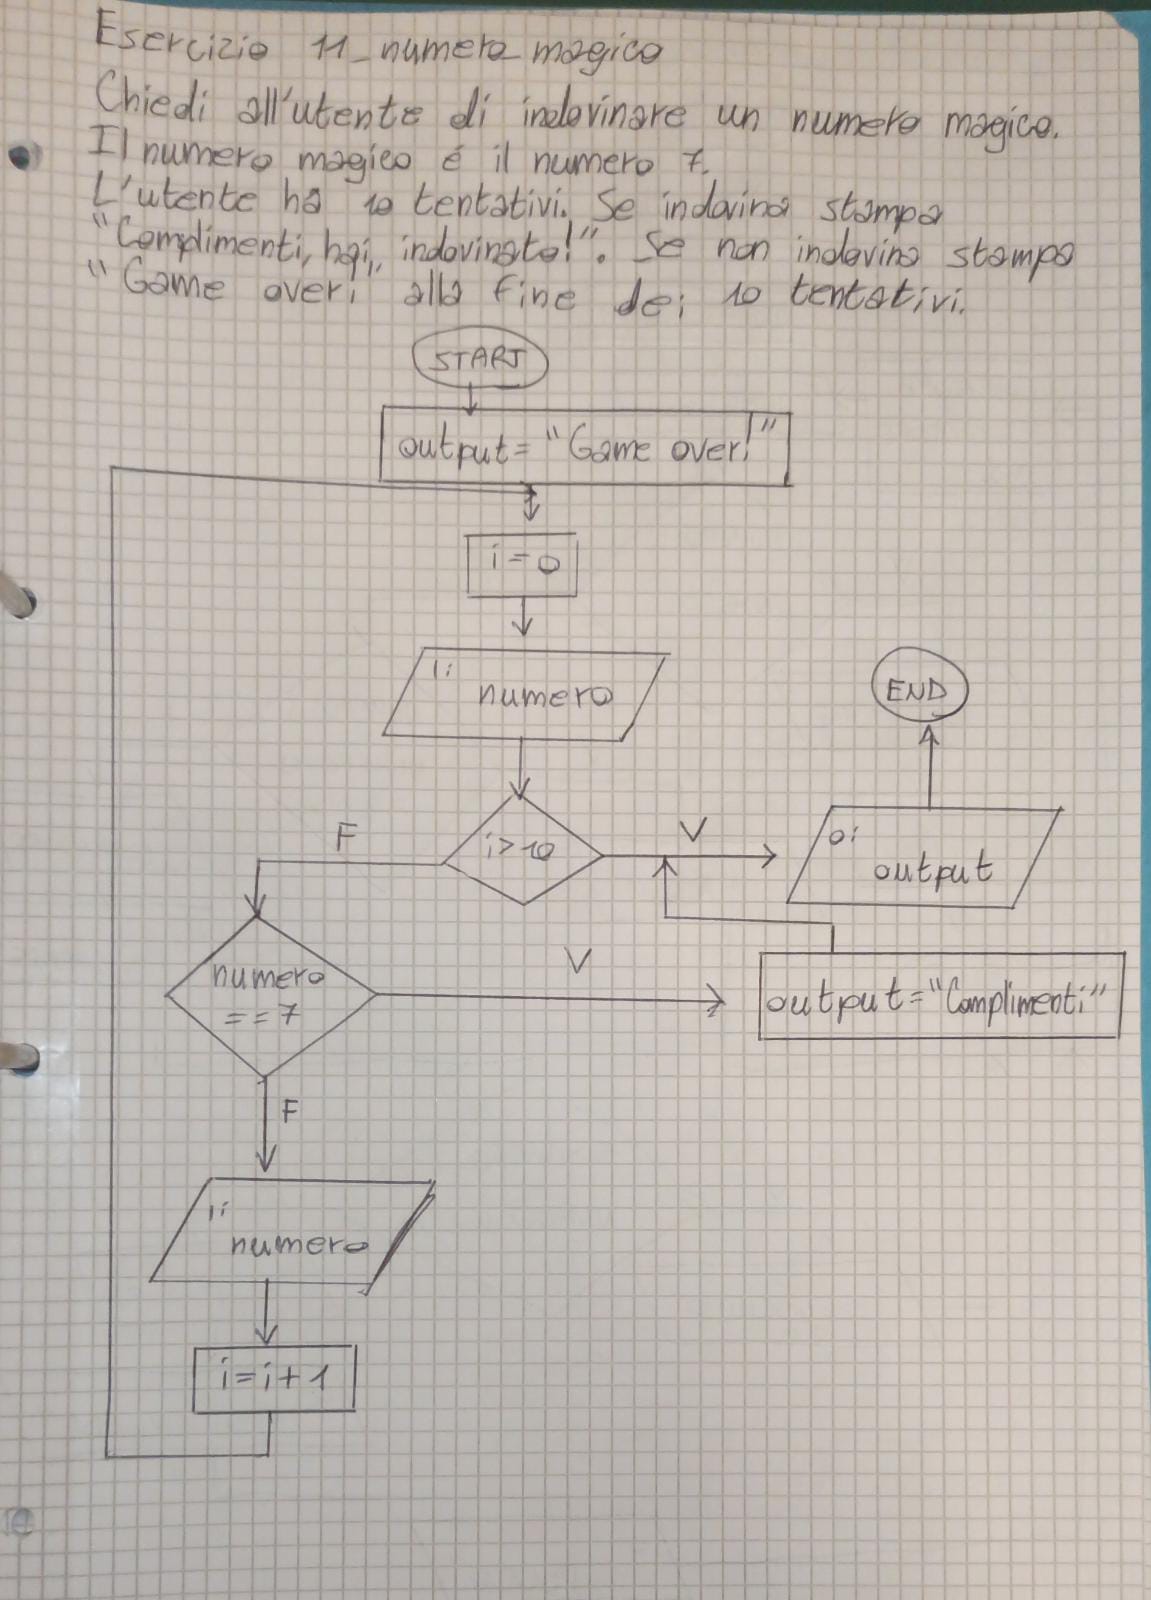 Esercizio 11_numero magico
Chiedi all'utente di indovinare un numero magico.
Il numero magico é il numero 7.
L'utente ha 10 tentativi. Se indovina stampa
"Complimenti, hai indovinato!". Se non indovina stampa
"Game over!" alla fine dei 10 tentativi.
START
output= "Game over!"
i=0
I:
numero
END
i>10
F
V
O:
output
numero
==7
V
output="Complimenti"
F
I:
numero
i=i+1